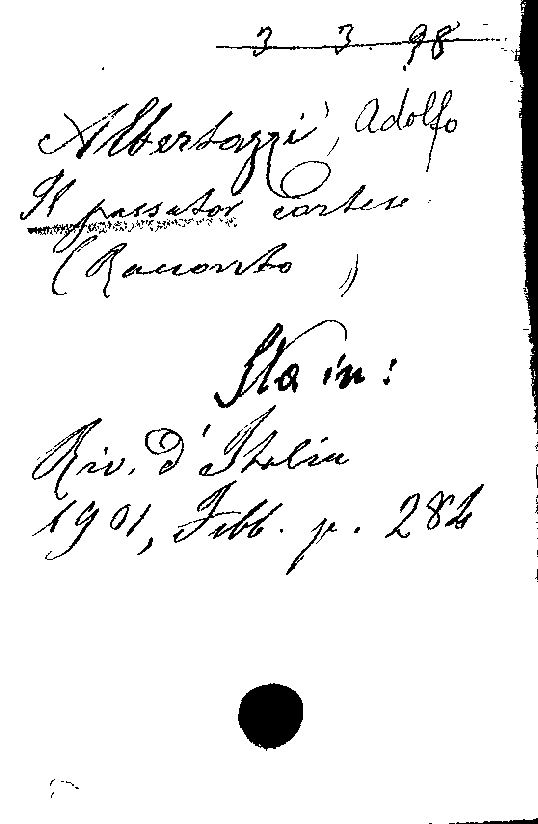 3 3 98
Albertazzi, Adolfo
Il passator cortese
(Racconto)
Sta in:
Riv. d'Italia
1901, Febb. p. 284